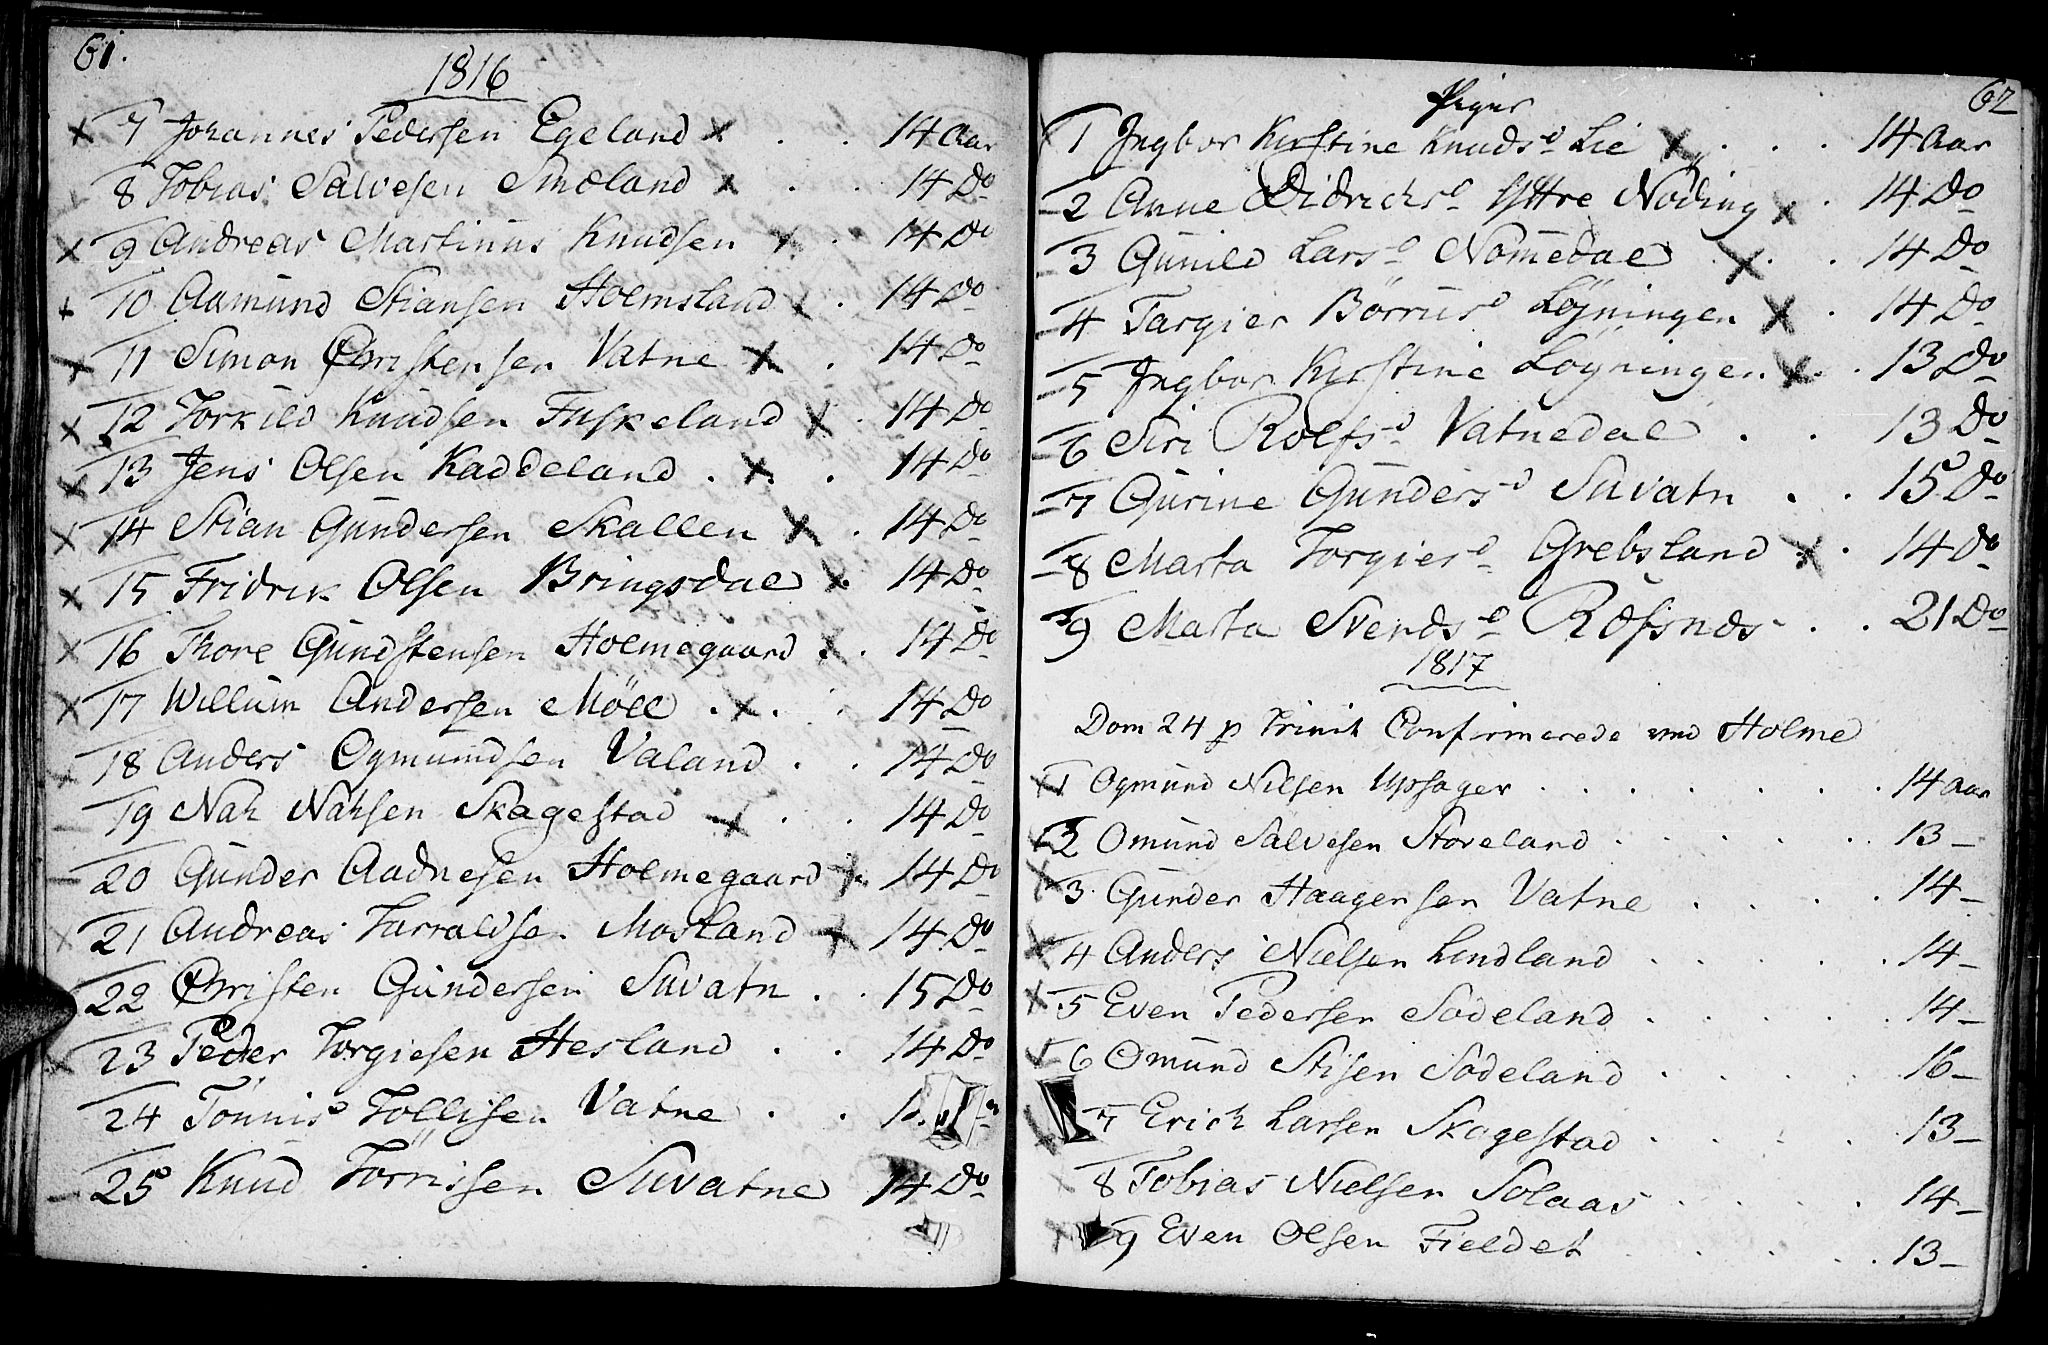 61.
1816
7 Johannes Pedersen Egeland × . . 14 Aar
8 Tobias Salvesen Smeland × . . 14 Do
9 Andreas Martinus Knudsen × . 14 Do
10 Aamund Stiansen Holmsland × . 14 Do
11 Simon Christensen Vatne × . 14 Do
12 Torkild Knudsen Fuskeland × . 14 Do
13 Jens Olsen Kaddeland . × . 14 Do
14 Stian Gundersen Skallen × . 14 Do
15 Fridrik Olsen Bringsdal × . 14 Do
16 Thore Gundstensen Holmegaard × . 14 Do
17 Willum Andersen Möll . × . . 14 Do
18 Anders Ogmundsen Valand . . 14 Do
19 Nah Nahsen Skagestad × . . 14 Do
20 Gunder Aadnesen Holmegaard × 14 Do
21 Andreas Tarraldsen Mosland × 14 Do
22 Christen Gundersen Suvatn . . 15 Do
23 Peder Torgiesen Hesland . . 14 Do
24 Tönnis Tollisen Vatne . .
25 Knud Torrissen Suvatne 14 Do
62
Piger
1 Ingbor Kirstine Knudsd Lie × . . . 14 Aar
2 Anne Didrichsd Yttre Noding × . 14 Do
3 Gunild Larsd Nomedal . × . . 14 Do
4 Targier Börrusd Löyningen × . 14 Do
5 Ingbor Kirstine Loyningen × . . 13 Do
6 Siri Rolfsd Vatnedal . . 13 Do
7 Gurine Gundersd Suvatn . . 15 Do
8 Marta Torgiersd Grebsland × . 14 Do
9 Marta Svendsd . . 21 Do
1817
Dom 24 p Trinit Confirmerede ved Holme
1 Ogmund Nilsen Upsager . . . . . . . 14 Aar
2 Omund Salvesen Stoveland . . . . . . 13 —
3 Gunder Haagensen Vatne . . . . 14 —
4 Anders Nielsen Lindland . . . . . 14 —
5 Even Pedersen Sodeland . . . . . 14 —
6 Omund Stisen Sodeland . . . . . 16 —
7 Erich Larsen Skagestad . . . . . 13 —
8 Tobias Nielsen Solaas . . . . . 14 —
9 Even Olsen Fieldet . . . . . 13 —